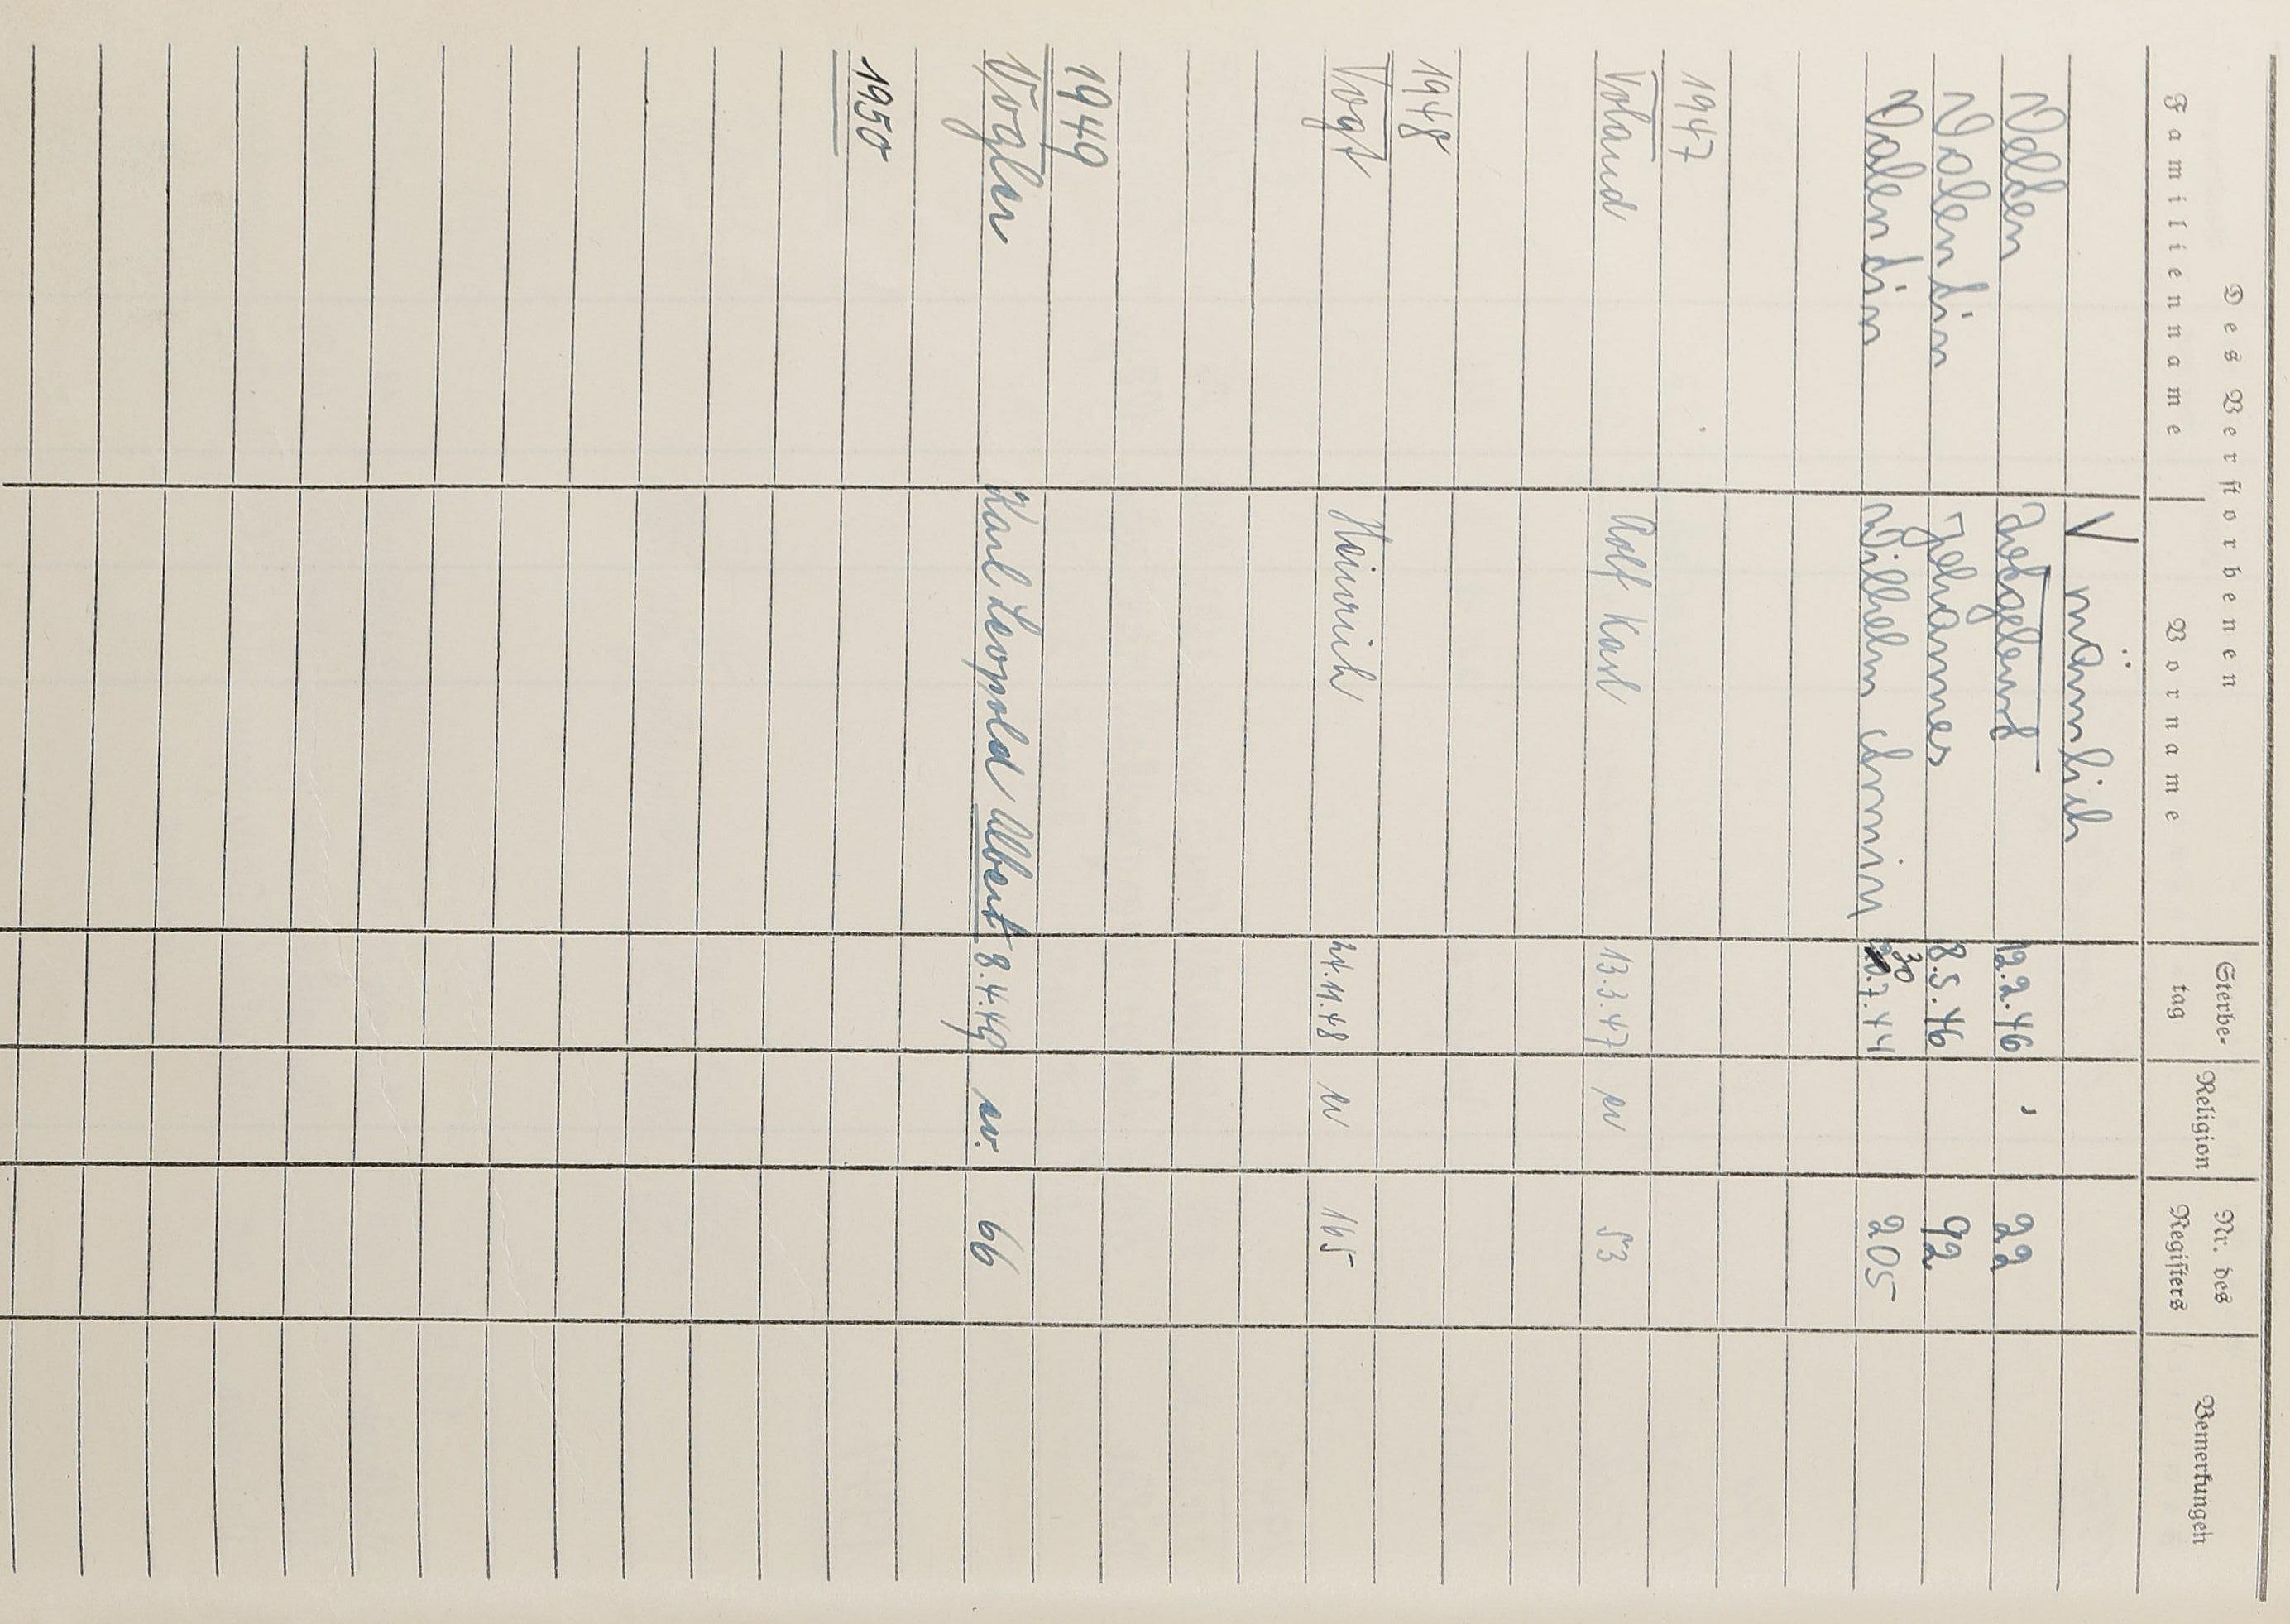 Des Verstorbenen
Familienname Vorname Sterbetag Religion Nr. des Registers Bemerkungen
V männlich
Velden 12.2.46 22
Valendin Johannes 8.5.46 92
Valendin Wilhelm Armin 30 7.44 205
1947
Voland Rolf Karl 13.3.47 ev 53
1948
Vogt Heinrich 24.11.48 ev 165
1949
Vogler Karl Leopold Albert 8.4.49 ev. 66
1950